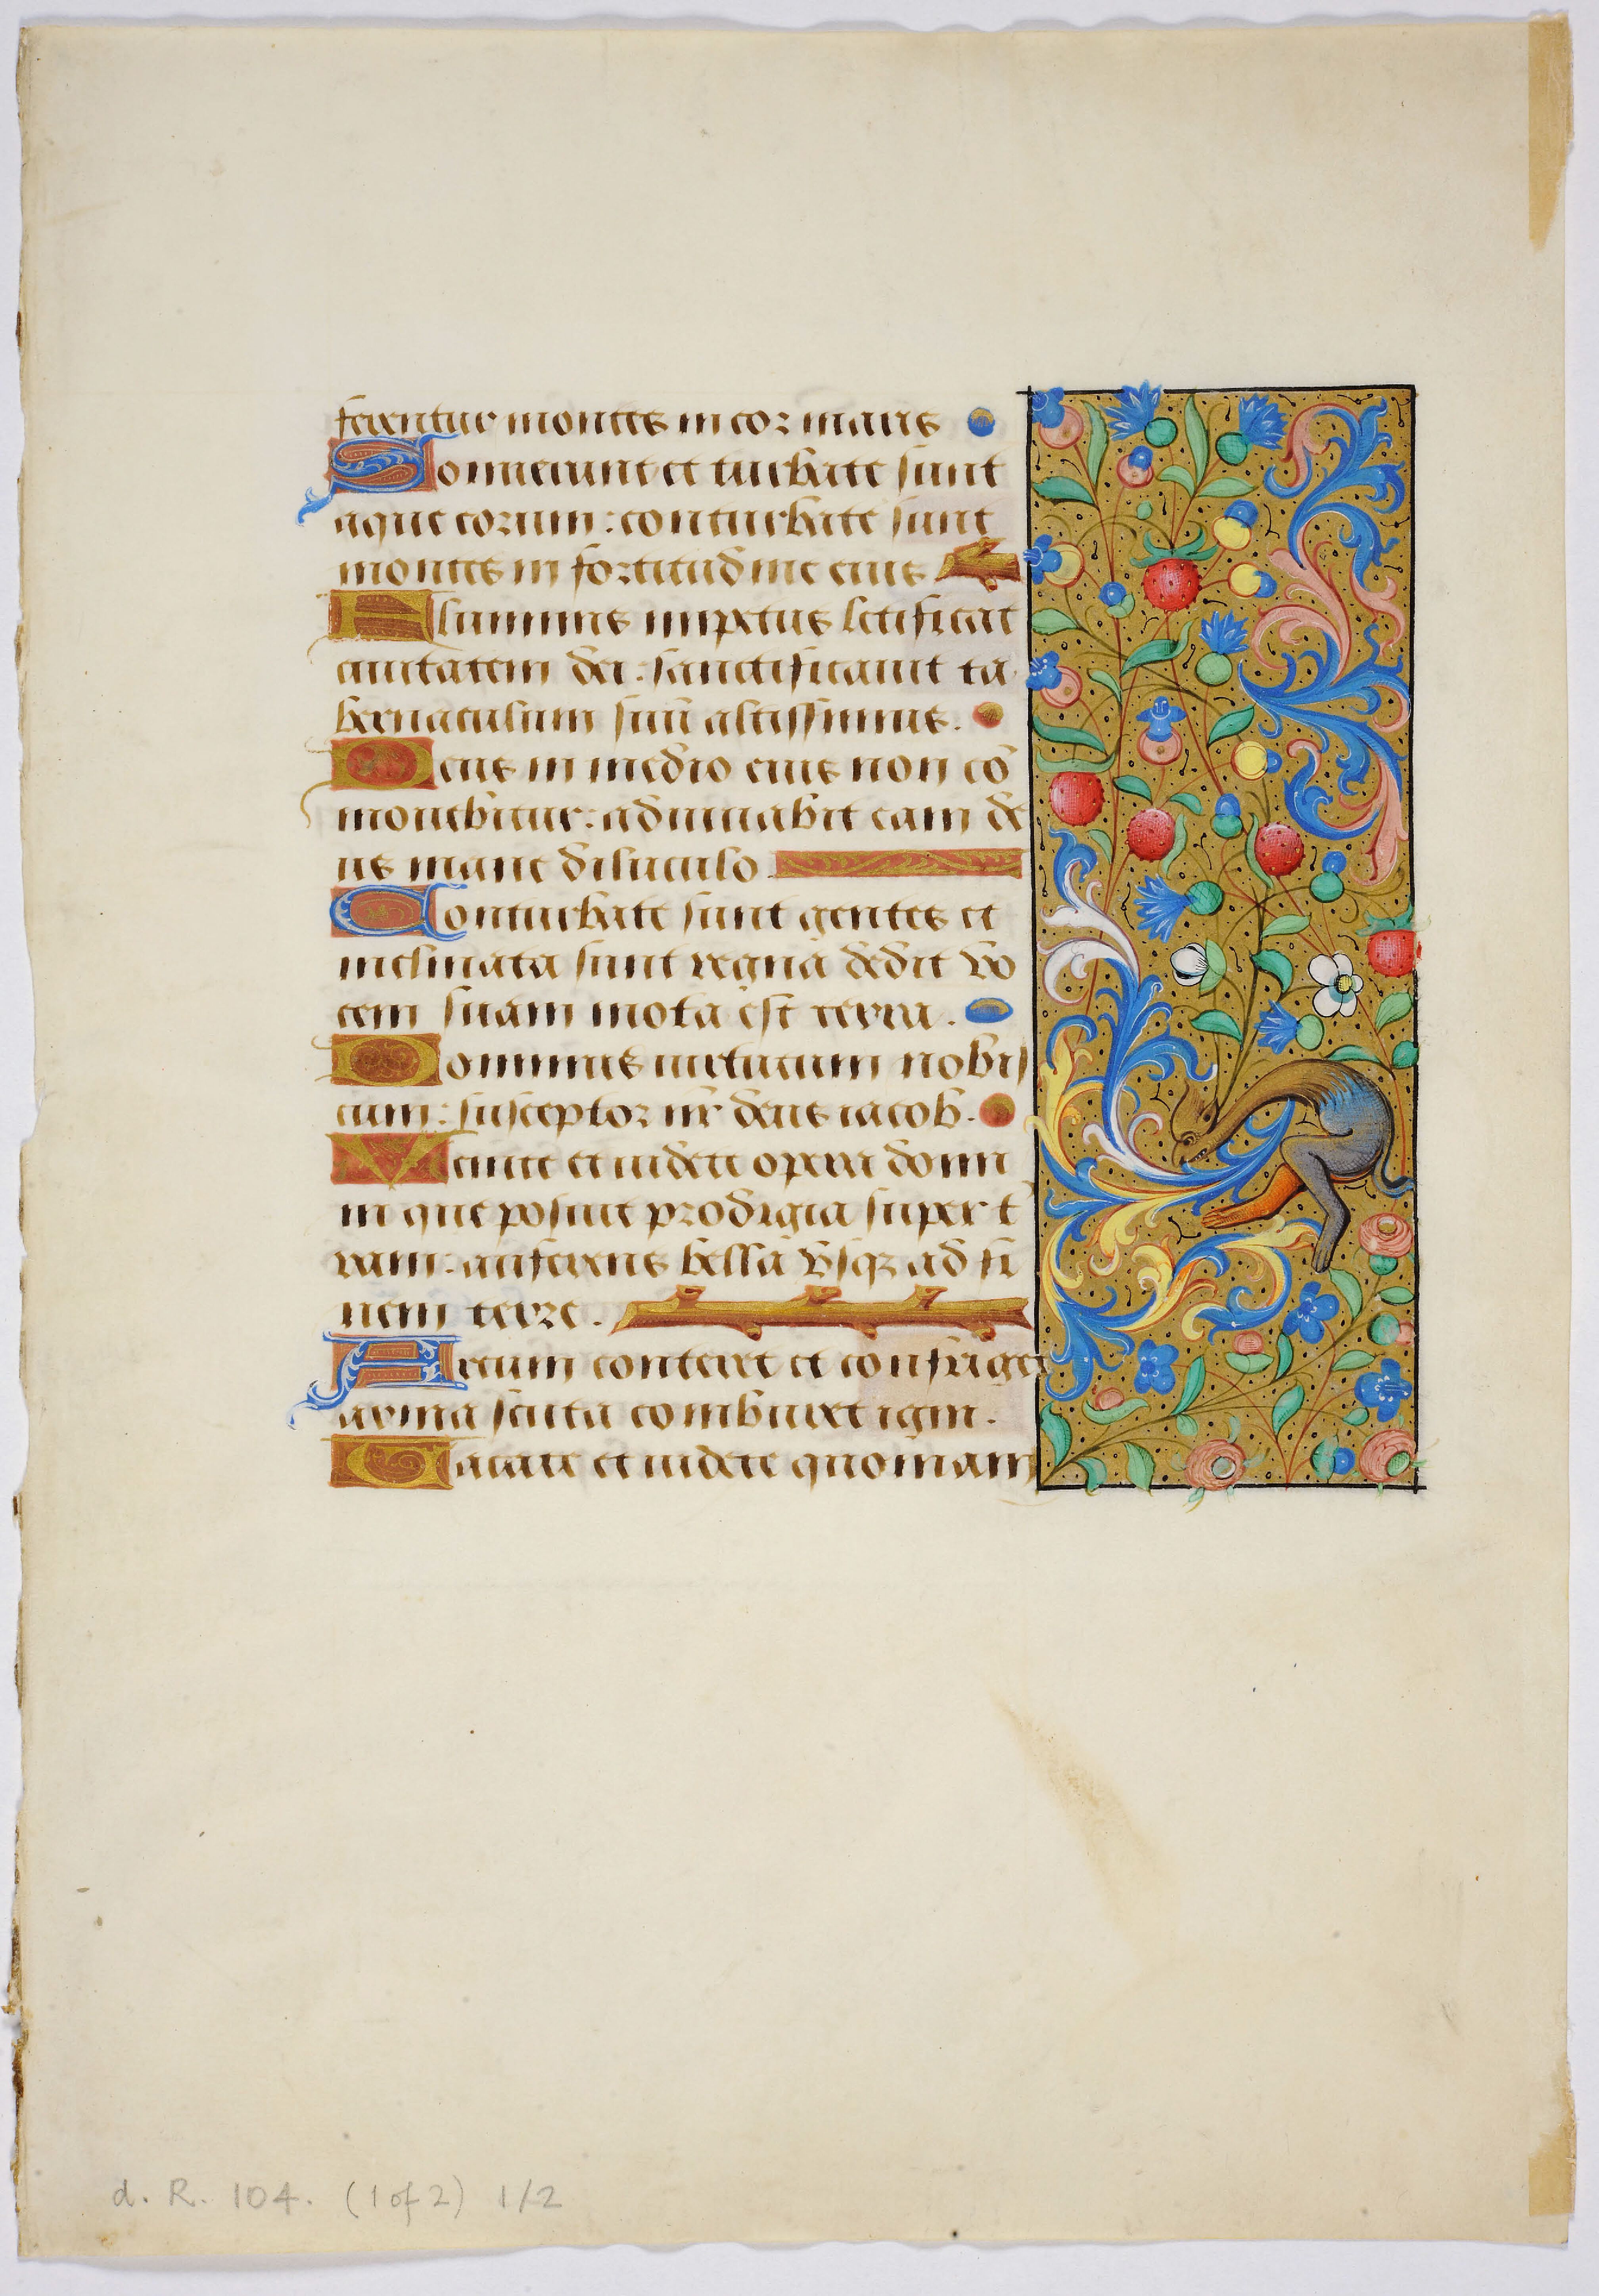 ferentur montes in cor maris
Sonuerunt et turbate sunt
aque eorum: conturbati sunt
montes in fortitudine eius
Fluminis impetus letificat
ciuitatem dei: sanctificauit ta
bernaculum suū altissimus.
Deus in medio eius non cō
mouebitur: adiuuabit eam de
us mane diluculo.
Conturbate sunt gentes et
inclinata sunt regna dedit vo
cem suam mota est terra.
Dominus uirtutum nobis
cum: susceptor nr̄ deus iacob.
Venite et uidete opera domi
ni que posuit prodigia super t
ram: auferens bella vsqz ad fi
nem terre.
Arcum conteret et confriget
arma scuta comburet igni.
Uacate et uidete quoniam
d. R. 104. (1 of 2) 1/2